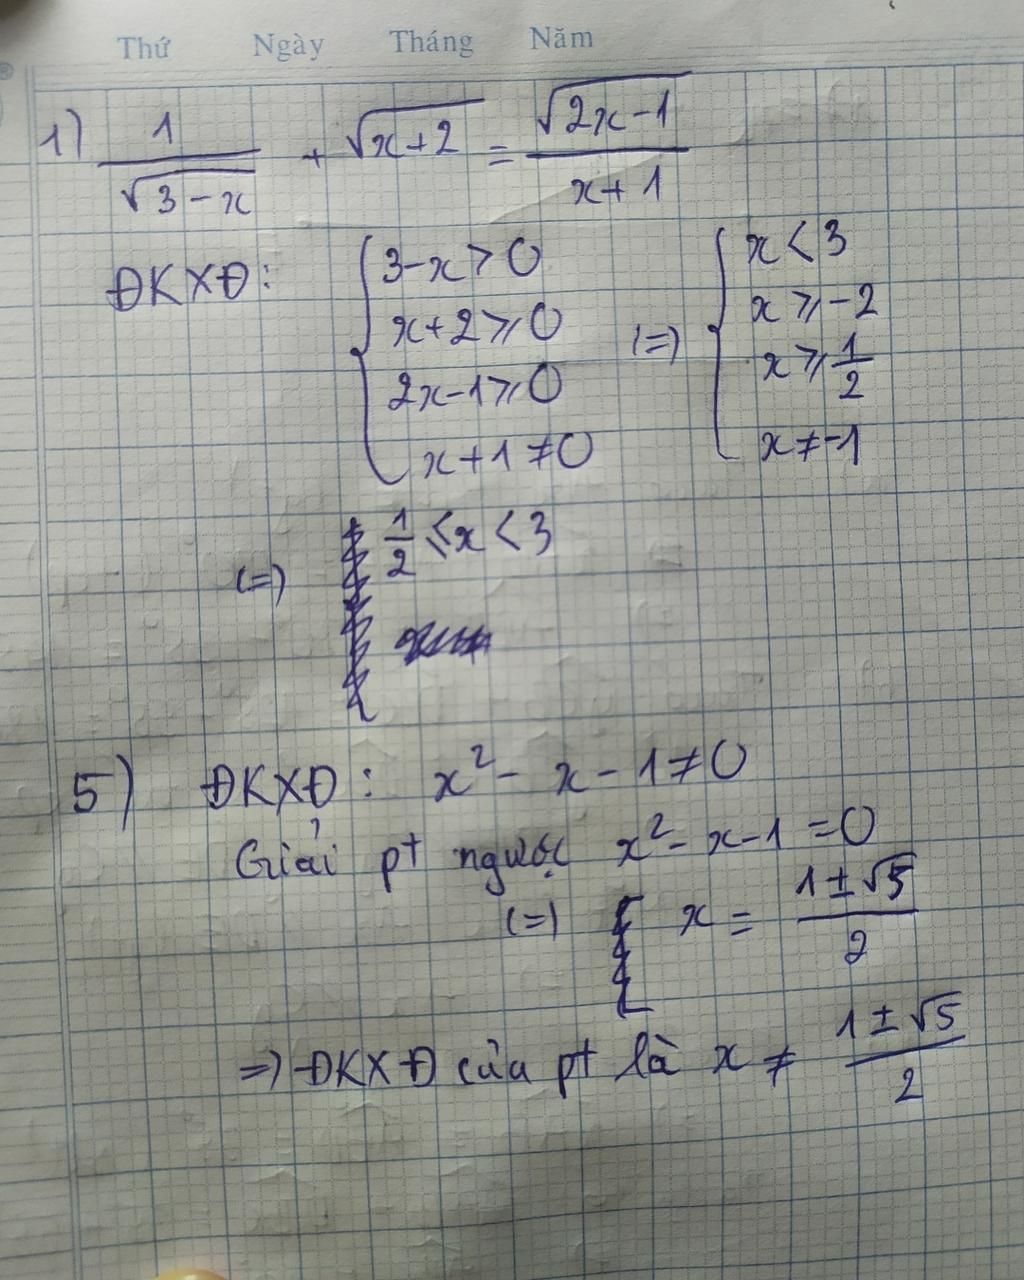 Thứ Ngày Tháng Năm
1) 1/√(3-x) + √(x+2) = √(2x-1)/(x+1)
ĐKXĐ: { 3-x > 0 (=) { x < 3
x+2 ⩾ 0 x ⩾ -2
2x-1 ⩾ 0 x ⩾ 1/2
x+1 ≠ 0 x ≠ -1
(=) 1/2 ⩽ x < 3
5) ĐKXĐ: x² - x - 1 ≠ 0
Giải pt ngược x² - x - 1 = 0
(=) [ x = (1 ± √5)/2
=) ĐKXĐ của pt là x ≠ (1 ± √5)/2